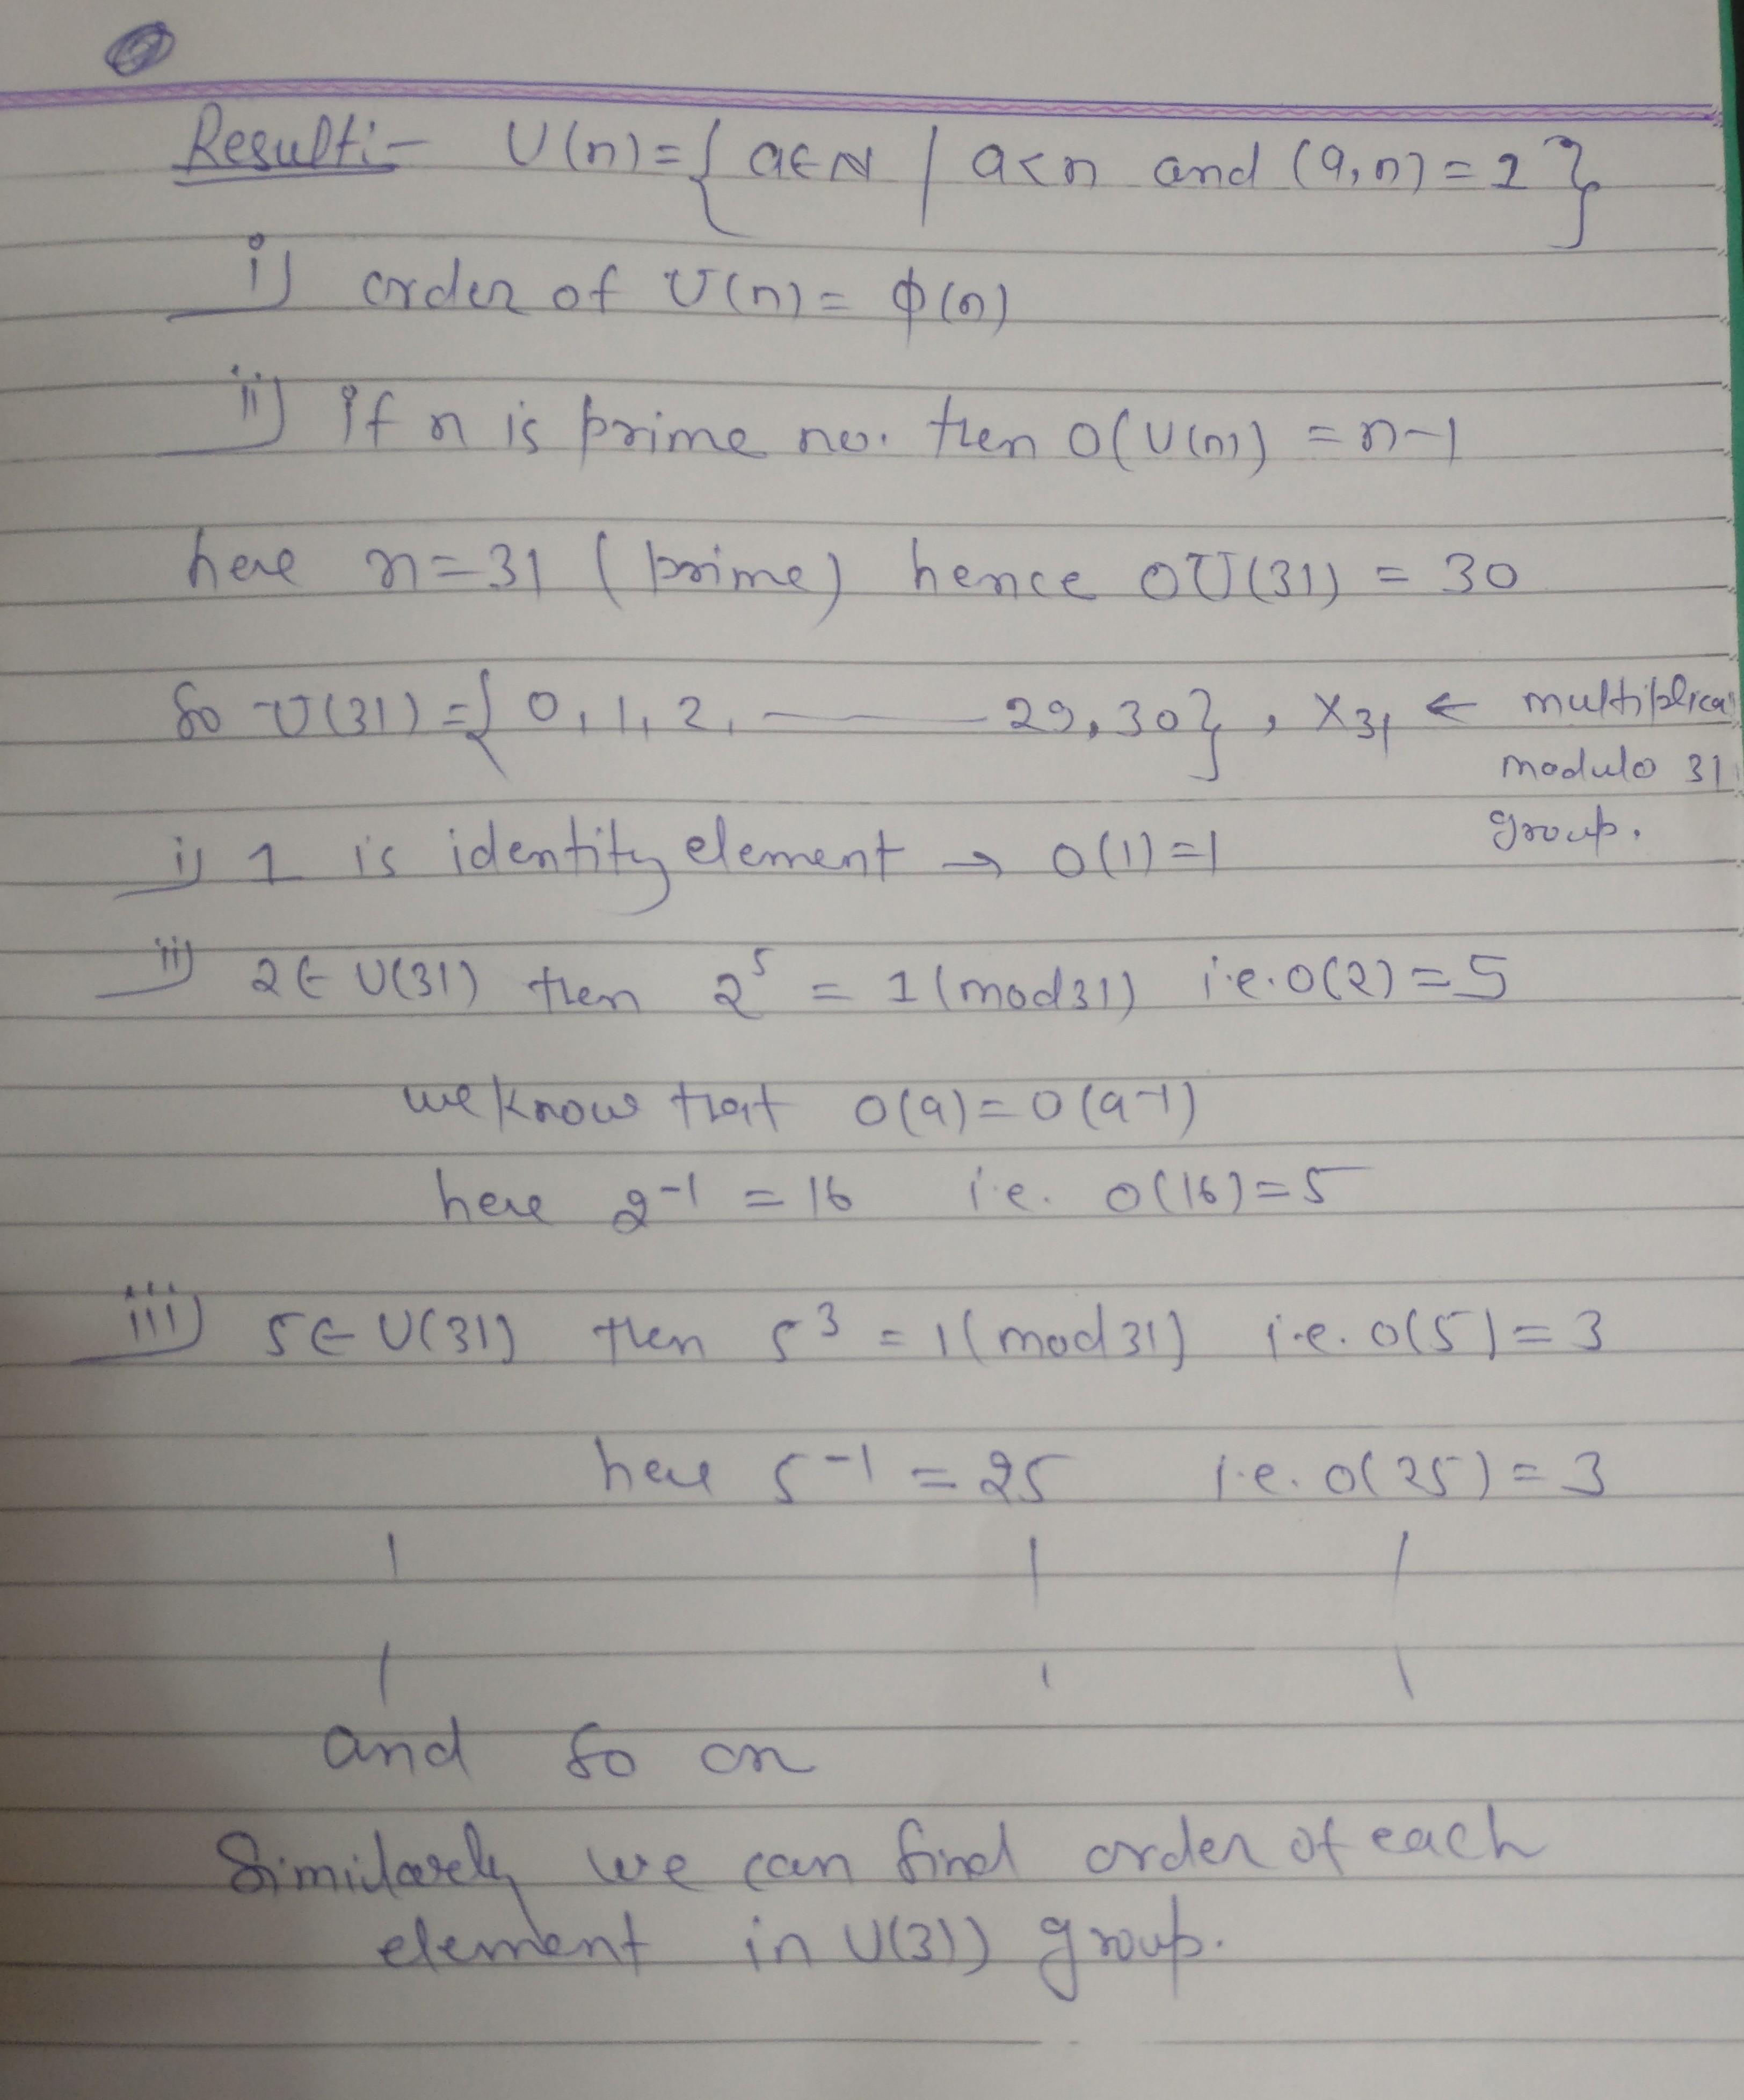 Result:- U(n)={ a∈N / a<n and (a,n)=1 }
i) order of U(n) = ϕ(n)
ii) if n is prime no. then O(U(n)) = n-1
here n=31 (prime) hence OU(31) = 30
So U(31)={ 0, 1, 2, ——— 29, 30}, X31 ← multiplica
modulo 31
group.
i) 1 is identity element → O(1)=1
ii) 2∈ U(31) then 2⁵ = 1(mod31) i.e. O(2)=5
we know that O(a)=O(a-1)
here 2⁻¹ = 16 i.e. O(16)=5
iii) 5∈ U(31) then 5³ = 1(mod31) i.e. O(5)=3
here 5⁻¹ = 25 i.e. O(25)=3
and so on
Similarely we can find order of each
element in U(31) group.